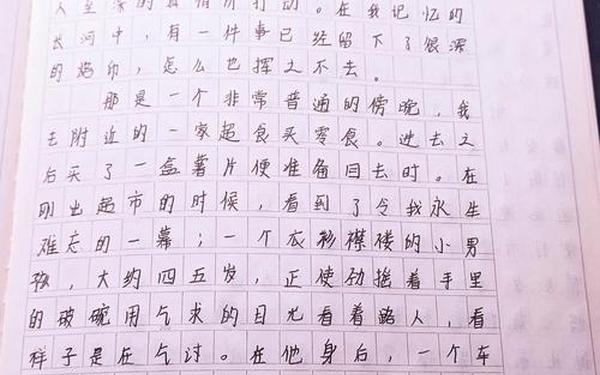 人至深的真情所打动。在我记忆的
长河中，有一件事已经留下了很深
的烙印，怎么也挥之不去。
那是一个非常普通的傍晚，我
去附近的一家超食买零食。进去之
后买了一盒薯片便准备回去时。在
刚出超市的时候，看到了令我永生
难忘的一幕；一个衣衫褴褛的小男
孩，大约四五岁，正使劲摇着手里
的破碗用乞求的目光看着路人，看
样子是在乞讨。在他身后，一个车